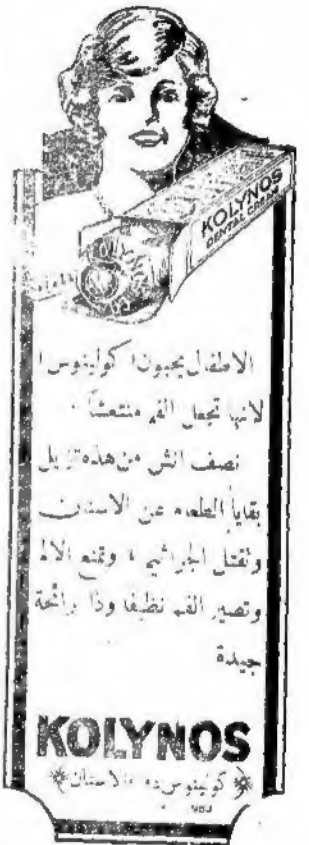 KOLYNOS
DENTAL CREAM
الاطفال يحبون ( كولينوس )
لانها تجعل الفم منتعشا .
نصف انش من هذه تزيل
بقايا الطعام عن الاسنان
وتقتل الجراثيم ، وتمنع الالم
وتصير الفم نظيفا وذا رائحة
جيدة
KOLYNOS
كولينوس للاسنان